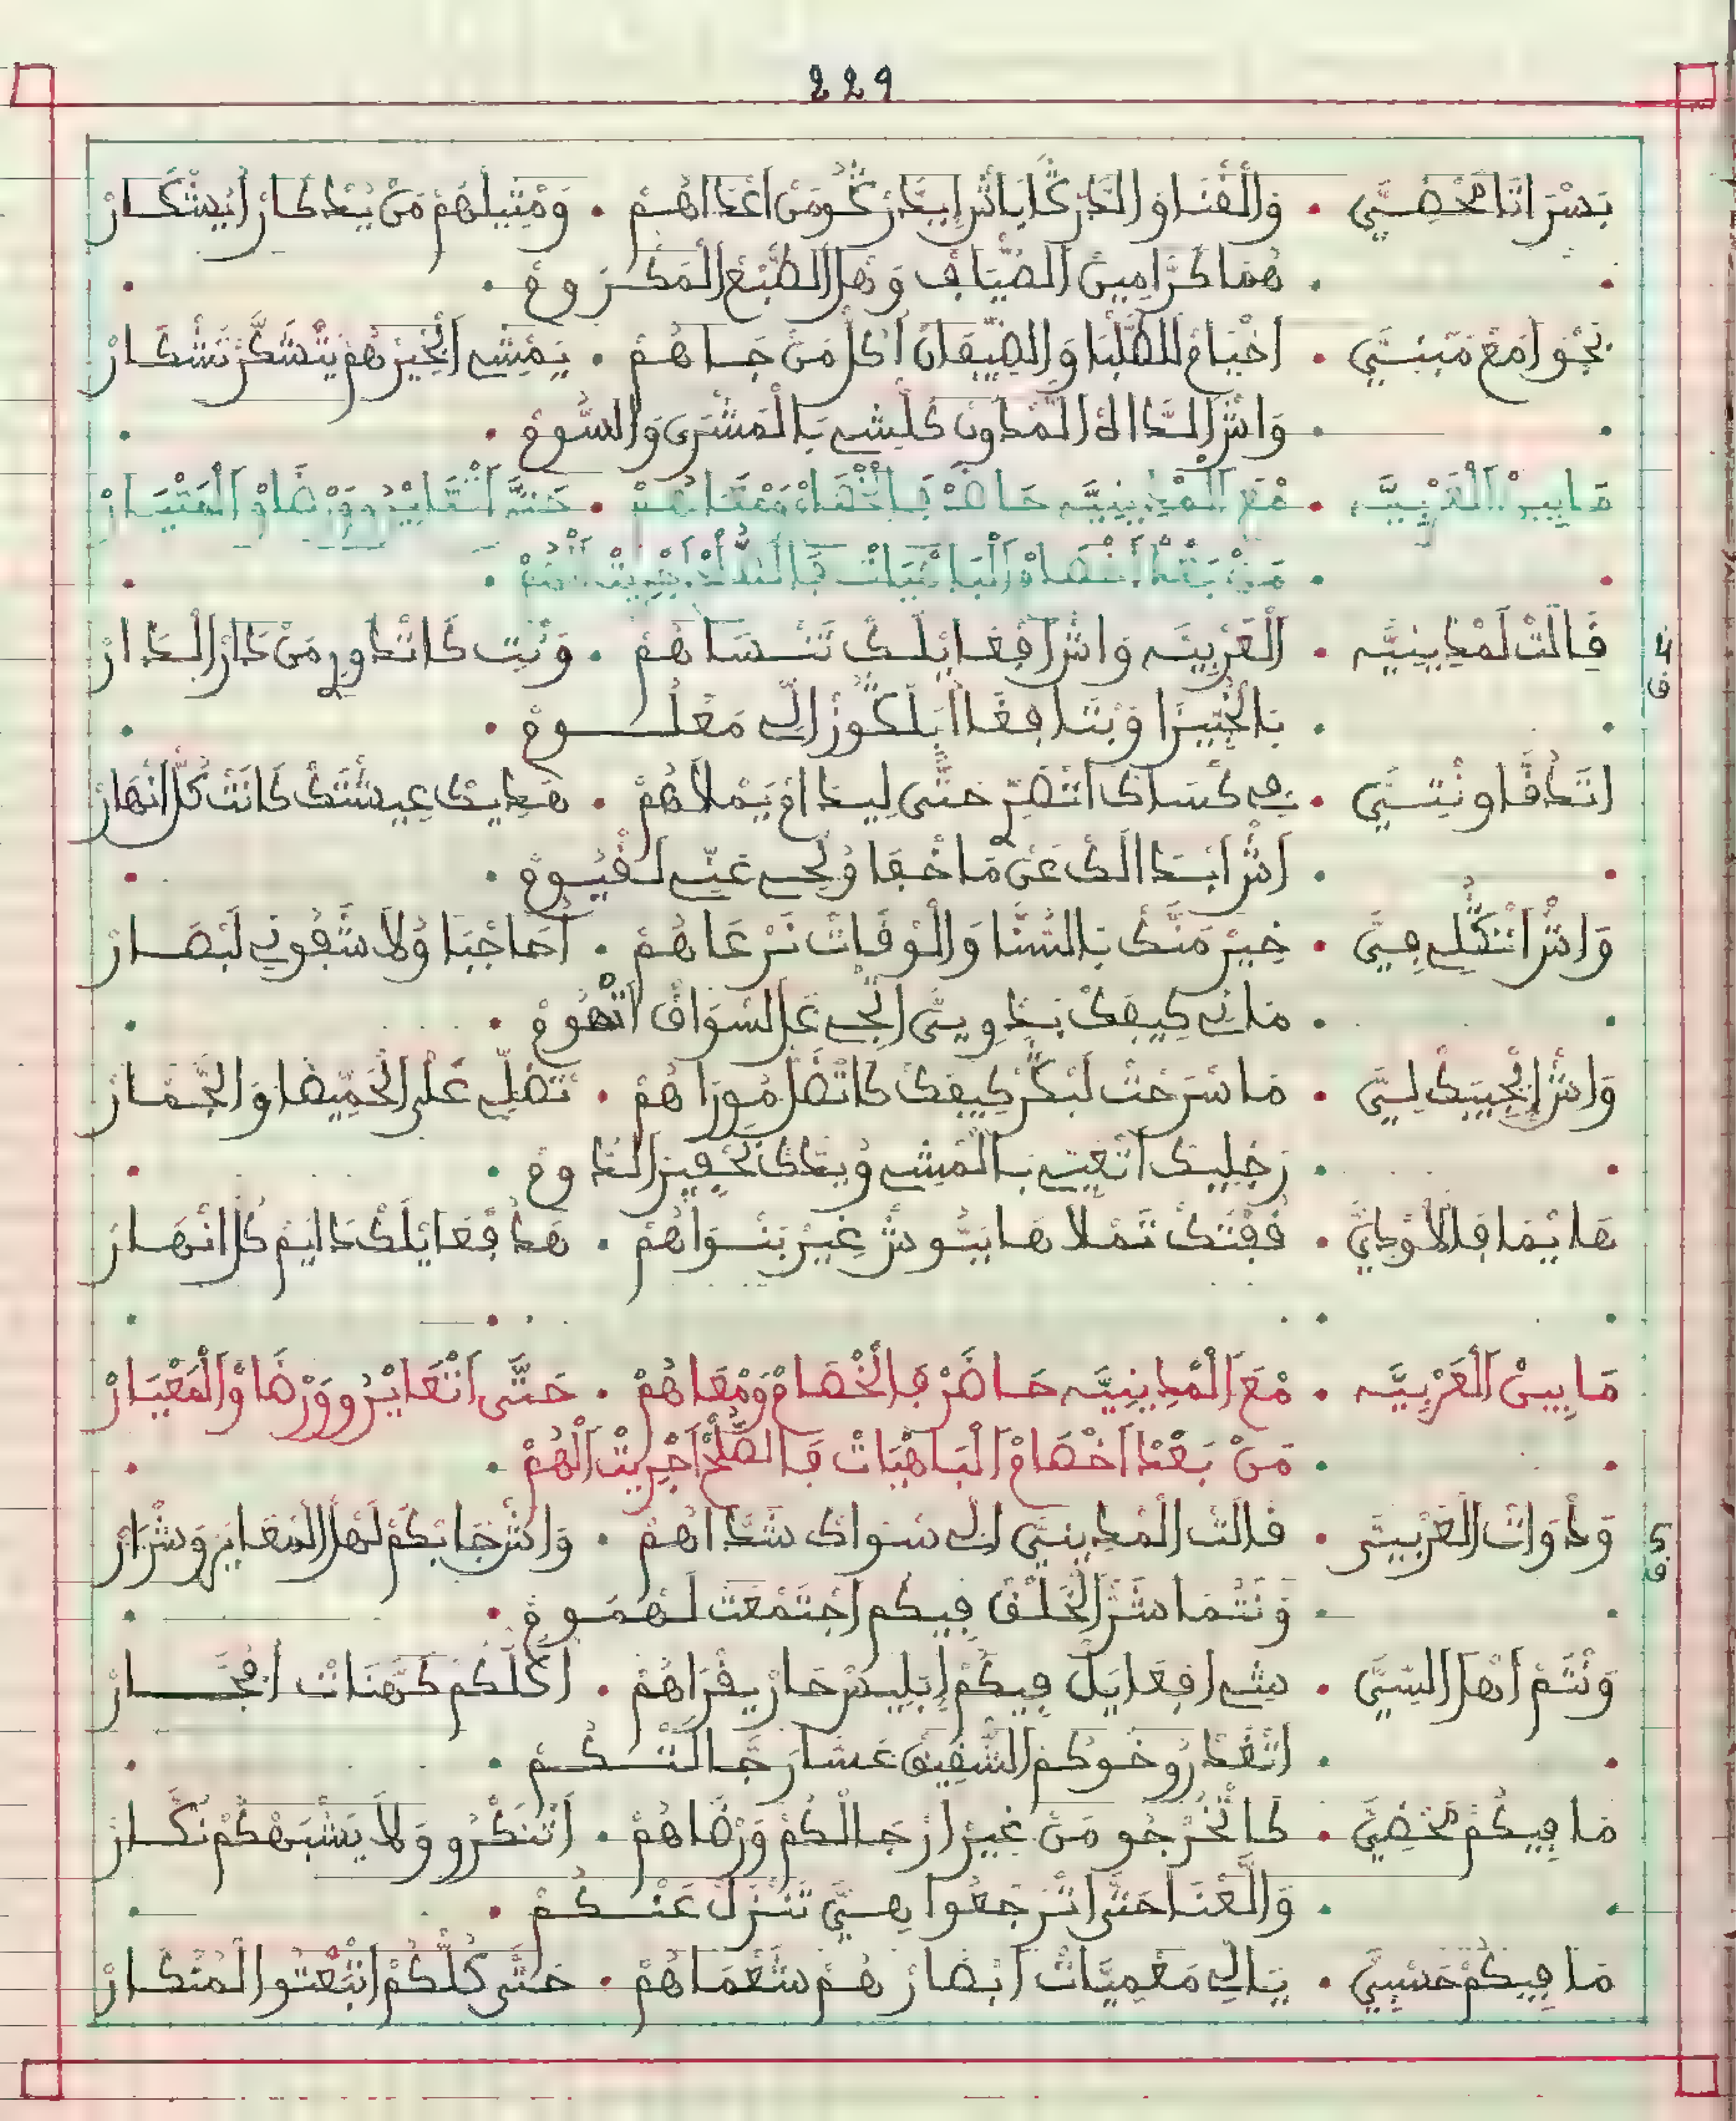 229
بَسْرَاتَا مَحْضِيَّ • وَالْقْنَاوَالتّدَرْكَا بَاشْ إِيدَّرْكُو مَنْ اَعْدَاهُمْ • وَمْثِيلْهُمْ مَنْ يَدْكَارْ أُيَشْكَارْ
• هُمَا كَرَّامِينْ الضْيَافْ وَهْلْ الطَّبْعْ الْمَكْرُومْ •
نَجُّو امَعْ مَبْنِيَّ • اخْيَامْ لَلطَّلْبَا وَالضِّيفَانْ اكُلّْ مَنْ جَاهُمْ • يَمْشِي الْخِيرْهُمْ يَتْشَكَّرْ تَشْكَارْ
• وَاشْ الدَّالَكْ الْمْدُونْ كُلْشِي بَالْمَشْرَى وَالسُّومْ •
مَابِينْ الْعَرْبِيَّه • مْعَ الْمْدِينِيَّه حَاضَرْ فَالْخْصَامْ وَمْعَاهُمْ • حَتَّى اَتْعَايْرُو وَرْضَاوْ الْمَعْيَارْ
• مَنْ بَعْدْ اَخْصَامْ الْبَاهْيَاتْ فَالصُّلْحْ اَجْرِيتْ اَلْهُمْ •
4 ف
قَالَتْ لَمْدِينِيَّه • الْعَرْبِيَّه وَاشْ افْعَايْلَكْ تَنْسَاهُمْ • وَنْتِ كَاتْدَورِي مَنْ دَارْ الْدَارْ
• بَالْخْبِيزَا وَبْنَافَعْ ابَلْكُوزْ الِّي مَغْلُومْ •
اتَدْقَّا وَنْتِيَّ • فِي كْسَاكْ اتْصَرِّ حَتَّى لِيدَامْ يَمْلَاهُمْ • هَدِيكْ عِيشْتَكْ كَانَتْ كُلّْ انْهَارْ
• اَشْ ابْدَالَكْ عَنْ مَا خْفَا وُلْحِي عَنِّي لَقْيُومْ •
وَاشْ اتْتَكْلِّي فِيَّ • خِيرْ مَنَّكْ بَالسْنَّا وَالْوْقَاتْ نَرْعَاهُمْ • اَحَاجْبَا وُلَا شَفُونِي لَبْصَارْ
• مَانِي كِيفَكْ بَدْوِيَّى الْحِي عَلْ السْوَاقْ اتْهُومْ •
وَاشْ اِيْجِيبَكْ لِيَّ • مَاسْرَحْتْ لَبْكَرْ كِيفَكْ كَاتْضَلْ مُورَاهُمْ • تَضَلِّي عَلَى الْحَمِيضَا وَالْحُمَّارْ
• رَجْلِيكْ اَتْعَيِي بَالْمْشِي وُيَدِّكْ تَحْفِيرْ الدُّومْ •
هَايْمَا فَالْاوْدِيَّ • قُفْتَكْ تَمْلَاهَا بَبُّوشْ غِيرْ بَنْوَاهُمْ • هَدْ فْعَايْلَكْ دَايَمْ كُلْ انْهَارْ
مَابِينْ الْعَرْبِيَّه • مْعَ الْمْدِينِيَّه حَاضَرْ فَالْخْصَامْ وَمْعَاهُمْ • حَتَّى اَتْعَايْرُو وَرْضَاوْ الْمَعْيَارْ
• مَنْ بَعْدْ اَخْصَامْ الْبَاهْيَاتْ فَالصُّلْحْ اَجْرِيتْ اَلْهُمْ •
5 ف
وَدْوَاتْ الْعَرْبِيَّ • قَالَتْ الْمْدِينِيَّى الِّي سْوَاكْ شَدَّاهُمْ • وَاشْ جَابْكُمْ لَهْلْ الْمْعَايَرْ وَشْرَارْ
• وَنْتُمَا شَرّْ الْخَلْقْ فِيكُمْ اجْتَمْعَتْ لَهْمُومْ •
وَنْتُمْ اهْلْ السِّيَّ • شِي افْعَايَلْ فِيكُمْ إِبْلِيسْ حَارْ يِقْرَاهُمْ • اكُلّْكُمْ كَهْنَاتْ افُجَّارْ
• اَتْقَدْ رُوخُوكُمْ الشْفِيقْ عَسَارَجَّالَتْكُمْ •
مَا فِيكُمْ مَحْضِيَّ • كَاتْخُرْجُو مَنْ غِيرْ ارْجَالْكُمْ وَرْضَاهُمْ • اَتْنَكْرُو وَلَا يَشْبَهْكُمْ نَكَّارْ
• وَالْعْنَا حَتَّى اتْرَجْعُوا هِيَّ تَنْزَلْ عَنْكُمْ •
مَا فِيكُمْ حَسْبِيَّ • يَالِي مَعْمِيَّاتْ ابْصَارْهُمْ سَعْمَاهُمْ • حَتَّى كُلّْكُمْ اتْبَعْتُو الْمُنْكَارْ